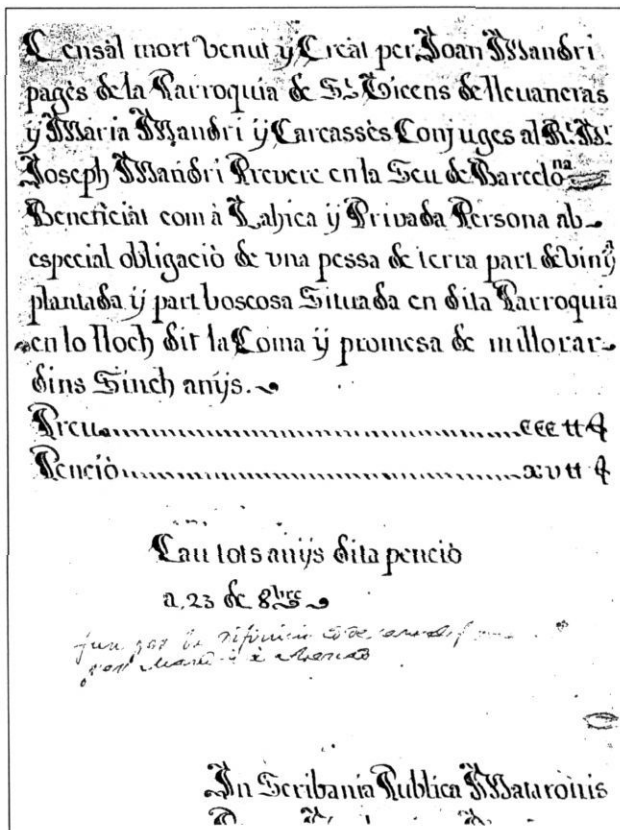 Censal mort venut ÿ Creat per Joan Mandri
pagès de la Parroquia de St. Vicens de llevaneras
ÿ Maria Mandri ÿ Carcassès Conjuges al Rt. Mr.
Joseph Mandri Prevere en la Seu de Barcelona
Beneficiat com à Lahica ÿ Privada Persona ab
especial obligaciò de vna pessa de terra part de vinÿa
plantada ÿ part boscosa Situada en dita Parroquia
en lo lloch dit la Coma ÿ promesa de millorar
dins Sinch anÿs.
Preu ccc tt
Penciò xv tt
Cau tots anÿs dita penciò
a, 23 de 8bre
In Scribania Publica Mataronis